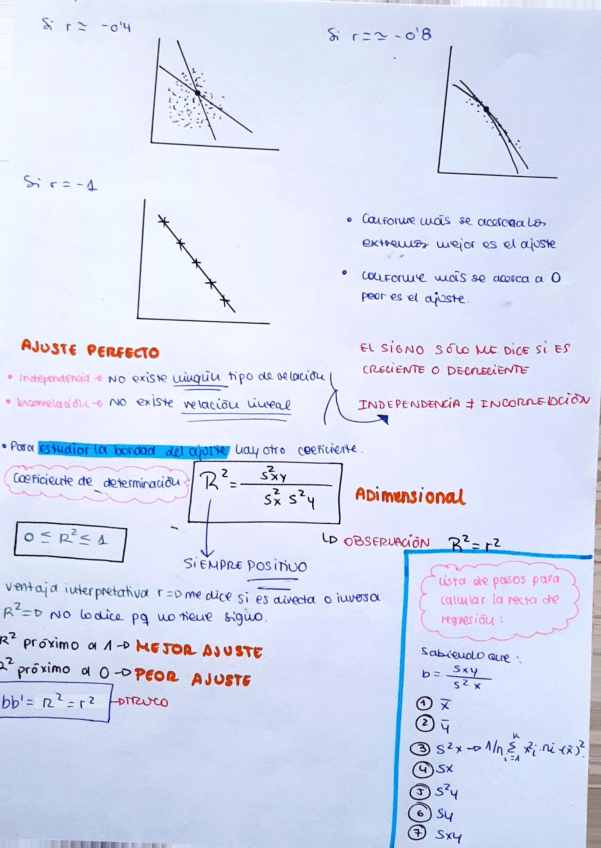 Si r ≃ -0'4
Si r = ≃ -0'8
Si r = -1
• Conforme más se acerca a los
extremos mejor es el ajuste
• Conforme más se acerca a 0
peor es el ajuste.
AJUSTE PERFECTO
• Independencia → NO existe ningún tipo de relación
• Incorrelación → NO existe relación lineal
EL SIGNO SÓLO ME DICE SI ES
CRECIENTE O DECRECIENTE
INDEPENDENCIA ≠ INCORRELACIÓN
• Para estudiar la bondad del ajuste hay otro coeficiente.
Coeficiente de determinación
R² = s²xy / s²x s²y
ADIMENSIONAL
0 ≤ R² ≤ 1
SIEMPRE POSITIVO
↳ OBSERVACIÓN R² = r²
Ventaja interpretativa r ⇒ me dice si es directa o inversa
R² ⇒ NO lo dice pq no tiene signo.
R² próximo a 1 → MEJOR AJUSTE
R² próximo a 0 → PEOR AJUSTE
bb' = R² = r² → TRUCO
Lista de pasos para
calcular la recta de
regresión:
Sabiendo que:
b = sxy / s²x
① x̄
② ȳ
③ s²x → 1/n Σ x²i · ni - (x̄)²
k
i=1
④ Sx
⑤ S²y
⑥ Sy
⑦ Sxy